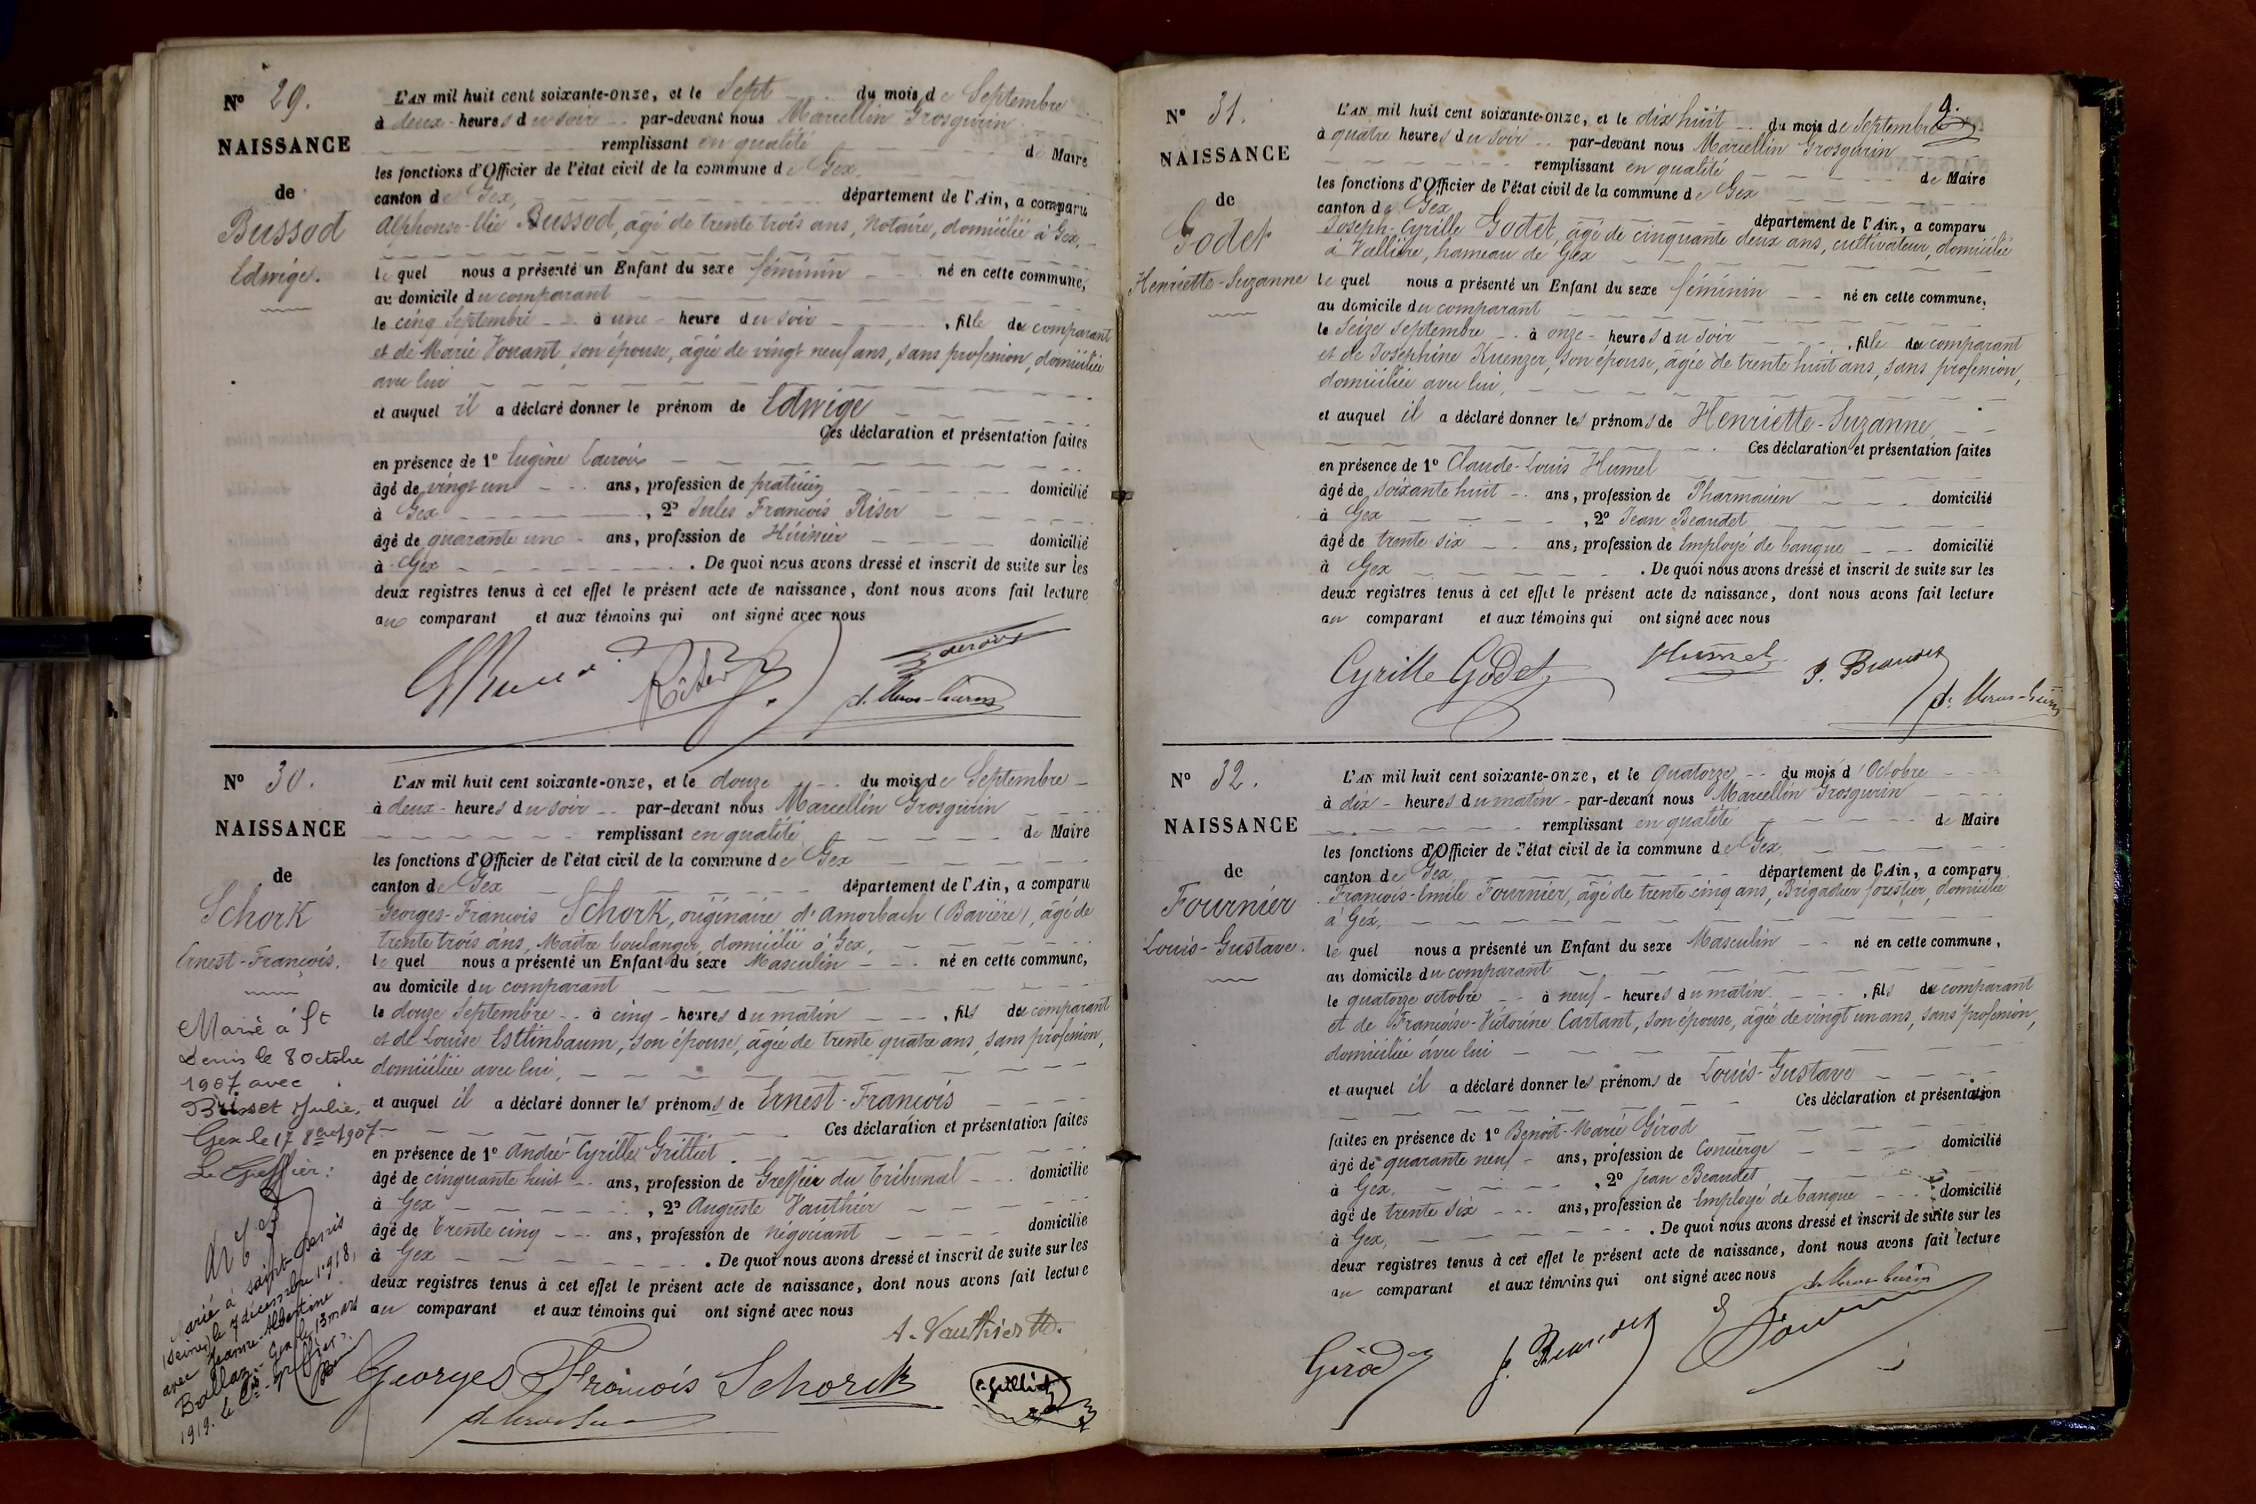 N° 29.
NAISSANCE
de
Bussod
Edwige.
L'AN mil huit cent soixante-onze, et le Sept du mois de Septembre
à deux heures du soir par-devant nous Marcellin Grosgurin
remplissant en qualité de Maire
les fonctions d'Officier de l'état civil de la commune de Gex
canton de Gex, département de l'Ain, a comparu
Alphonse- Bussod, âgé de trente trois ans, Notaire, domicilié à Gex,
lequel nous a présenté un Enfant du sexe féminin né en cette commune,
au domicile du comparant
le cinq Septembre à une heure du soir, fille du comparant
et de Marie Vouant, son épouse, âgée de vingt neuf ans, sans profession, domiciliée
avec lui
et auquel il a déclaré donner le prénom de Edwige
Ces déclaration et présentation faites
en présence de 1° Eugène Lacroix
âgé de vingt un ans, profession de praticien domicilié
à Gex, 2° Jules François Riser
âgé de quarante une ans, profession de Huissier domicilié
à Gex. De quoi nous avons dressé et inscrit de suite sur les
deux registres tenus à cet effet le présent acte de naissance, dont nous avons fait lecture
au comparant et aux témoins qui ont signé avec nous
Riser
N° 30.
NAISSANCE
de
Schork
Ernest-François.
Marié à St
Denis le 8 Octobre
1907 avec
Brisset Julie.
Gex le 17 8bre 1907
Le Greffier:
Marié à Saint-Denis
(Seine) le 7 décembre 1918,
avec Jeanne-Albertine
Ballaz.- Gex le 13 mars
1919. Le Cis-greffier.
L'AN mil huit cent soixante-onze, et le douze du mois de Septembre
à deux heures du soir par-devant nous Marcellin Grosgurin
remplissant en qualité de Maire
les fonctions d'Officier de l'état civil de la commune de Gex
canton de Gex département de l'Ain, a comparu
Georges-François Schork, originaire d'Amorbach (Bavière), âgé de
trente trois ans, Maître boulanger, domicilié à Gex,
lequel nous a présenté un Enfant du sexe Masculin né en cette commune,
au domicile du comparant
le douze Septembre à cinq heures du matin, fils du comparant
et de Louise Estlinbaum, son épouse, âgée de trente quatre ans, sans profession,
domiciliée avec lui,
et auquel il a déclaré donner les prénoms de Ernest-François
Ces déclaration et présentation faites
en présence de 1° André-Cyrille Grilliet.
âgé de cinquante huit ans, profession de Greffier du Tribunal domicilié
à Gex, 2° Auguste Vauthier
âgé de trente cinq ans, profession de négociant domicilié
à Gex. De quoi nous avons dressé et inscrit de suite sur les
deux registres tenus à cet effet le présent acte de naissance, dont nous avons fait lecture
au comparant et aux témoins qui ont signé avec nous
A. Vauthier
Georges François Schorck
N° 31.
NAISSANCE
de
Godet
Henriette-Suzanne
9.
L'AN mil huit cent soixante-onze, et le dix huit du mois de Septembre
à quatre heures du soir par-devant nous Marcellin Grosgurin
remplissant en qualité de Maire
les fonctions d'Officier de l'état civil de la commune de Gex
canton de Gex département de l'Ain, a comparu
Joseph-Cyrille Godet, âgé de cinquante deux ans, cultivateur, domicilié
à Vallière, hameau de Gex
lequel nous a présenté un Enfant du sexe féminin né en cette commune,
au domicile du comparant
le Seize septembre à onze heures du soir, fille du comparant
et de Joséphine Kuenzer, son épouse, âgée de trente huit ans, sans profession,
domiciliée avec lui,
et auquel il a déclaré donner les prénoms de Henriette-Suzanne,
Ces déclaration et présentation faites
en présence de 1° Claude-Louis Humel
âgé de soixante huit ans, profession de Pharmacien domicilié
à Gex, 2° Jean Beaudet
âgé de trente six ans, profession de Employé de banque domicilié
à Gex. De quoi nous avons dressé et inscrit de suite sur les
deux registres tenus à cet effet le présent acte de naissance, dont nous avons fait lecture
au comparant et aux témoins qui ont signé avec nous
Cyrille Godet Humel J. Beaudet
N° 32.
NAISSANCE
de
Fournier
Louis-Gustave.
L'AN mil huit cent soixante-onze, et le quatorze du mois d'Octobre
à dix heures du matin par-devant nous Marcellin Grosgurin
remplissant en qualité de Maire
les fonctions d'Officier de l'état civil de la commune de Gex
canton de Gex, département de l'Ain, a comparu
François-Emile Fournier, âgé de trente cinq ans, Brigadier forestier, domicilié
à Gex,
lequel nous a présenté un Enfant du sexe Masculin né en cette commune,
au domicile du comparant
le quatorze octobre à neuf heures du matin, fils du comparant
et de Françoise-Victorine Cartant, son épouse, âgée de vingt un ans, sans profession,
domiciliée avec lui
et auquel il a déclaré donner les prénoms de Louis-Gustave
Ces déclaration et présentation
faites en présence de 1° Benoit-Marie Girod
âgé de quarante neuf ans, profession de Concierge domicilié
à Gex, 2° Jean Beaudet
âgé de trente six ans, profession de Employé de banque domicilié
à Gex, . De quoi nous avons dressé et inscrit de suite sur les
deux registres tenus à cet effet le présent acte de naissance, dont nous avons fait lecture
au comparant et aux témoins qui ont signé avec nous
Girod J. Beaudet